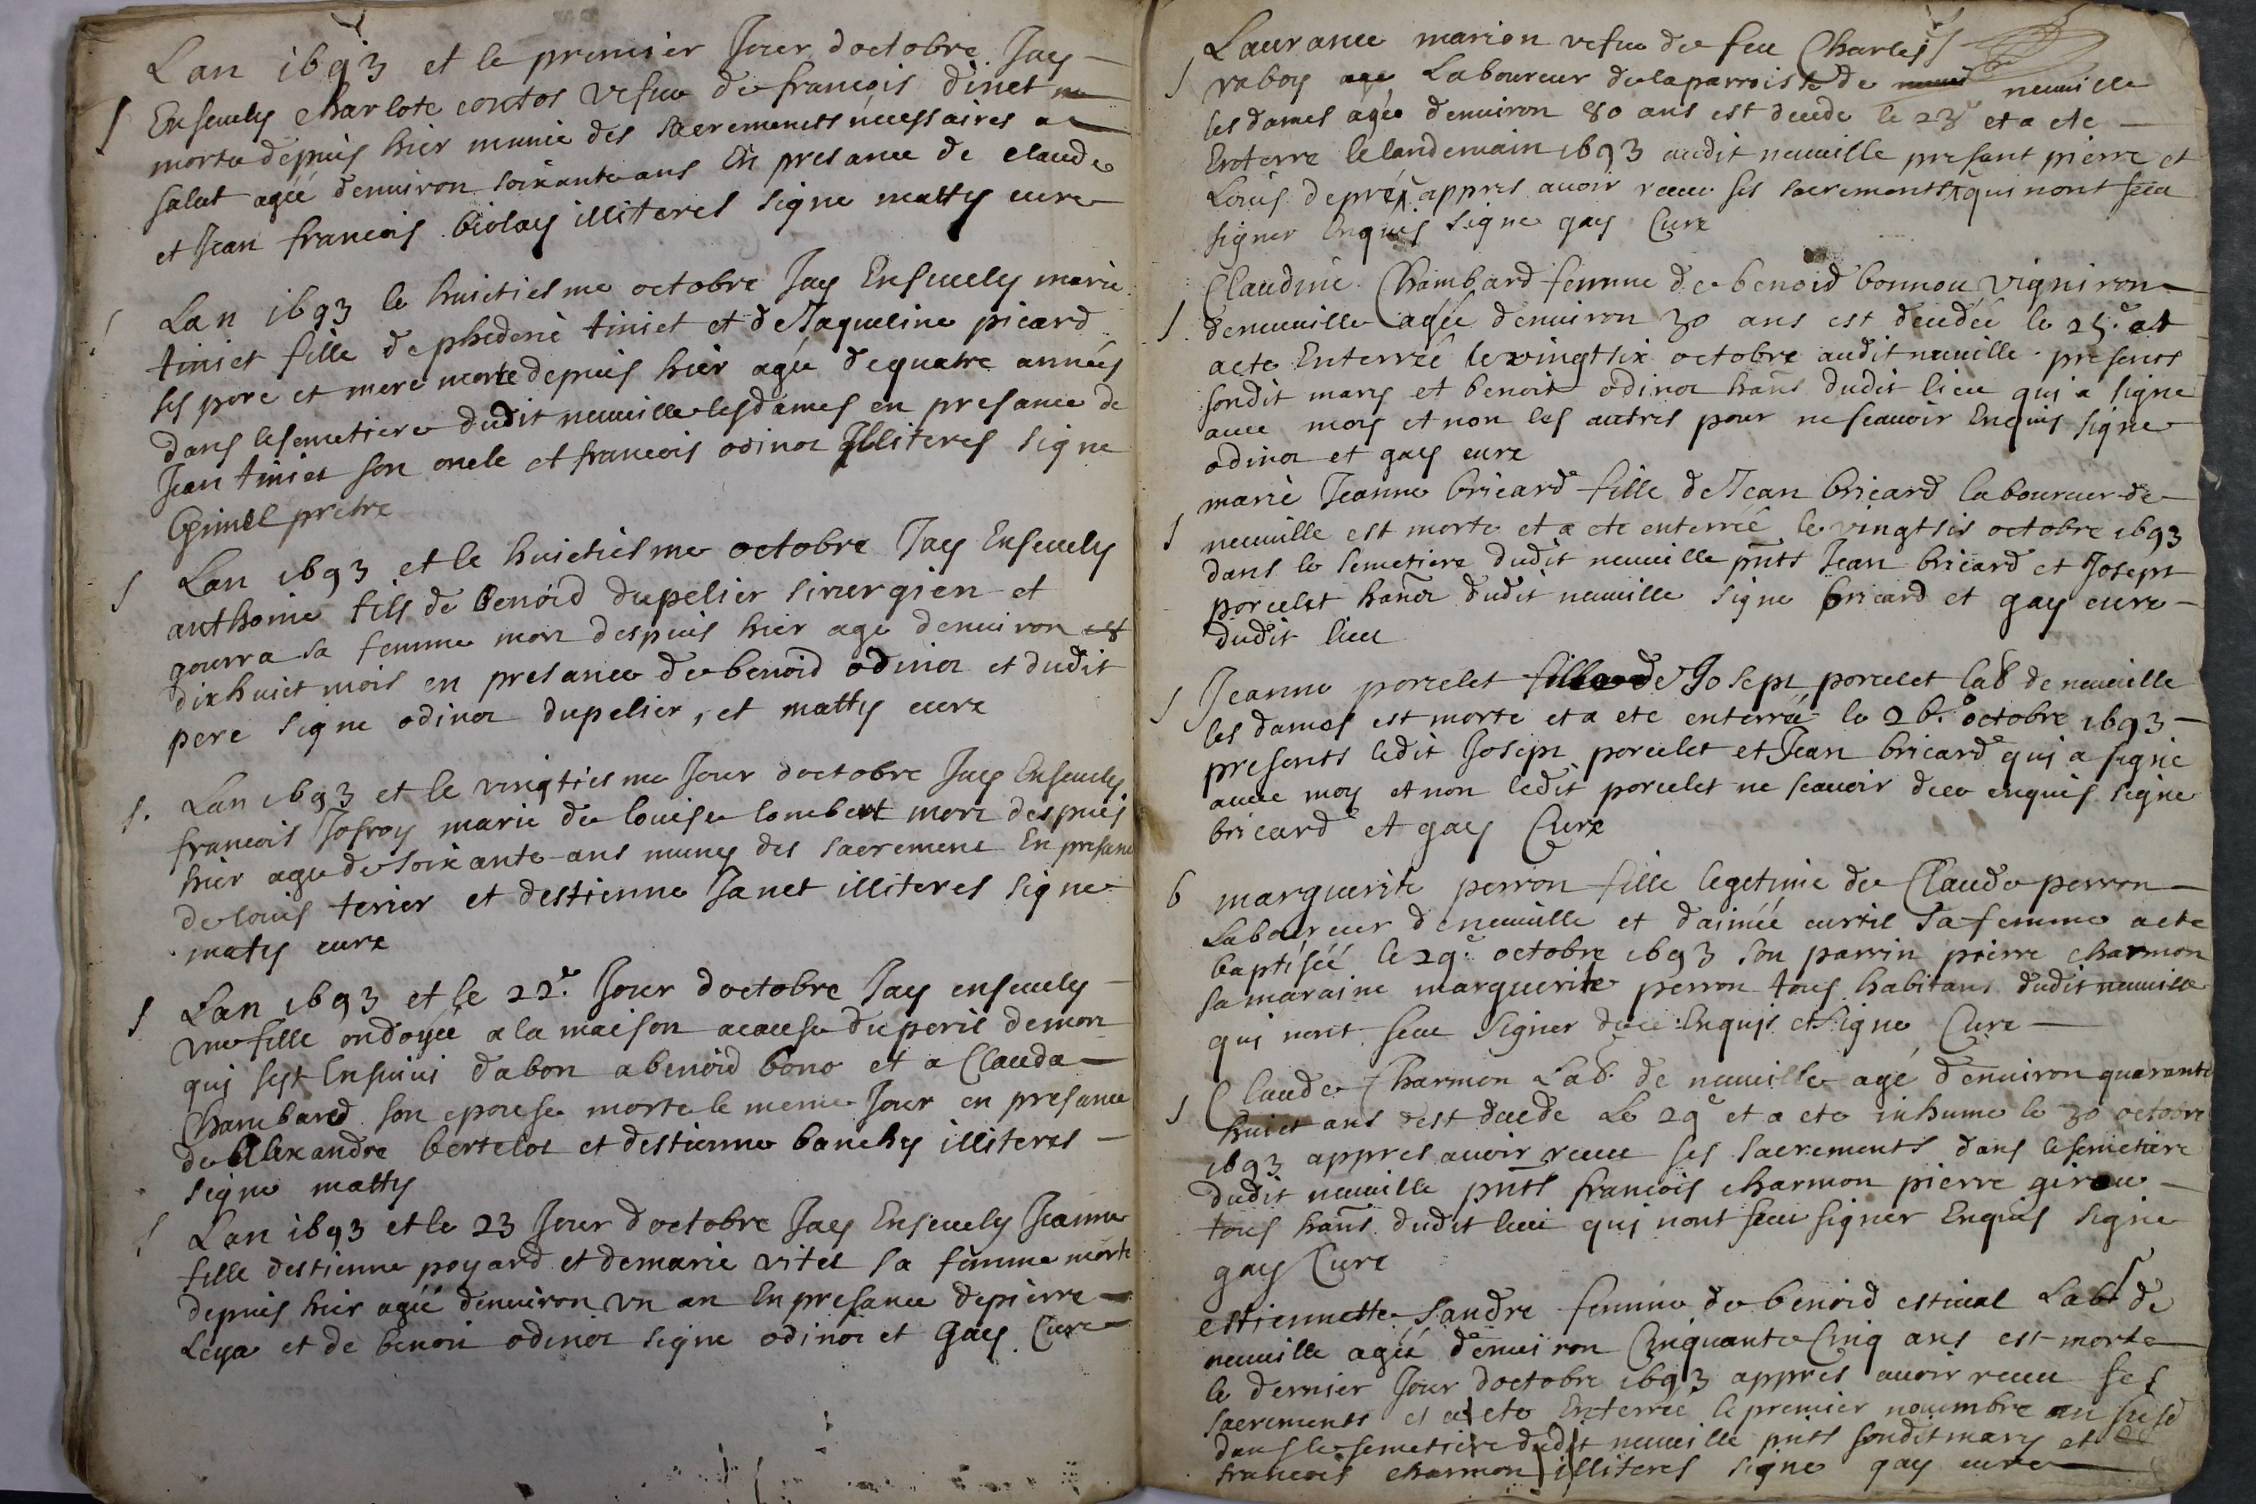 Lan 1693 et le premier Jour doctobre Jay
S Ensevely charlote contos vefue de francois dinet
morte depuis hier munie des sacrements nécessaires a
salut agéé denuiron soixante ans En presance de claude
et Jean francois biolay illiteres signe matty cure
S Lan 1693 le huictiesme octobre Jay Ensevely marie
tiniet fille de phederic tiniet et de Jaqueline picard
ses pere et mere morte depuis hier agéé de quatre années
dans le semetiere dudit neuuille les dames en presance de
Jean tiniet son oncle et francois odinot illiteres signe
Gimel pretre
S Lan 1693 et le huictiesme octobre Jay Ensevely
anthoine fils de benoid dupelier sirurgien et
gourra sa femme mort despuis hier age denuiron
dixhuict mois en presance de benoid odinot et dudit
pere signe odinot dupelier, et matty cure
S. Lan 1693 et le vingtiesme Jour doctobre Jay Ensevely
francois Jofroy marie de louise lombert mort despuis
hier age de soixante ans muny des sacrement En presance
de louis terier et destienne Janet illiteres signe
maty cure
S Lan 1693 et le 22e. Jour doctobre Jay ensevely
vne fille ondoyée a la maison acause du peril de mort
qui sest Ensuivi dabon a benoid bono et a Clauda
Chambard son epouse morte le meme Jour en presance
de Alexandre bertelot et destienne banchy illiteres
signe matty
S Lan 1693 et le 23 Jour doctobre Jay Ensevely Jeanne
fille destienne poyard et demarie vitel sa femme morte
depuis hier agéé denuiron vn an En presance depierre
Leya et de benoit odinot signe odinot et Gay Cure
Laurance marion vefue de feu Charles
S raboy age Laboureur delaparroisse de neuuille
les dames agée denuiron 80 ans est decede le 23e et a ete
Enterre le landemain 1693 audit neuuille present pierre et
Loüis deprés appres auoir receu ses sacrements qui nont sceu
signer Enquis signe gay Cure
Claudine Chambard femme de benoid bonnou vigniron
S. deneuuille agéé denuiron 30 ans est decedéé le 25e. et
aete Enterréé le vingtsix octobre audit neuuille presents
sondit mary et benoit odinot hans dudit lieu qui a signe
auec moy et non les autres pour ne scauoir Enquis signe
odinot et gay cure
marie Jeanne bricard fille de Jean bricard laboureur de
S neuuille est morte et a ete enterréé le vingtsix octobre 1693
dans le semetiere dudit neuuille pnts Jean bricard et Joseph
porcelet hant dudit neuuille signe bricard et gay cure
dudit lieu
S Jeanne porcelet fille de Joseph porcelet lab de neuuille
les dames est morte et a ete enterréé le 26.e octobre 1693
presents ledit Joseph porcelet et Jean bricard qui a signé
auec moy et non ledit porcelet ne scauoir dece enquis signe
bricard et gay Cure
b marguerite perron fille legetime de Claude perron
Laboureur deneuuille et daiméé curtil sa femme a ete
baptiséé le 29e. octobre 1693 son parrin pierre charmon
sa maraine marguerite perron tous habitans dudit neuuille
qui nont sceu signer dece Enquis et signe Cure
S Claude Charmon Lab. de neuuille agé denuiron quarante
huict ans est decede Le 29e et a ete inhume le 30 octobre
1693 appres auoir receu ses sacrements dans le semetiere
dudit neuuille pnts francois charmon pierre girou
tous hans dudit lieu qui nont sceu signer Enquis signe
gay Cure
S estiennette Sandre femme de benoid estiual Labr de
neuuille agéé denuiron Cinquante Cinq ans est morte
le dernier Jour doctobre 1693 appres auoir receu ses
sacrements et a ete Enterrée le premier nouembre an susd
dans le semetiere dudit neuuille pnts sondit mary et
francois charmon illiteres signe gay cure